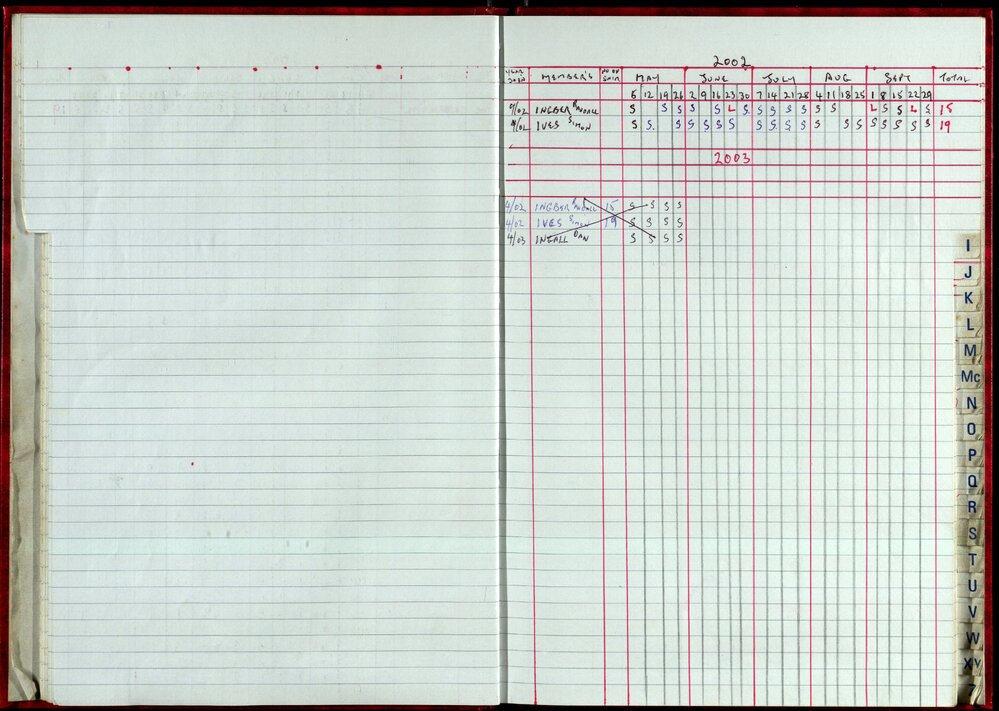 2002
YEAR JOIN MEMBER'S NO OF SWIM MAY JUNE JULY AUG SEPT TOTAL
5 12 19 26 2 9 16 23 30 7 14 21 28 4 11 18 25 1 8 15 22 29
INGBER RANDALL S S S S S L S. S S S S S S L S S L S 15
IVES SIMON S S. S S S S S S S S S S S S S S S S S 19
2003
4/02 INGBER RANDALL 15 S S S S
4/02 IVES SIMON 19 S S S S
4/03 INGALL DAN S S S S
I
J
K
L
M
Mc
N
O
P
Q
R
S
T
U
V
W
XY
Z